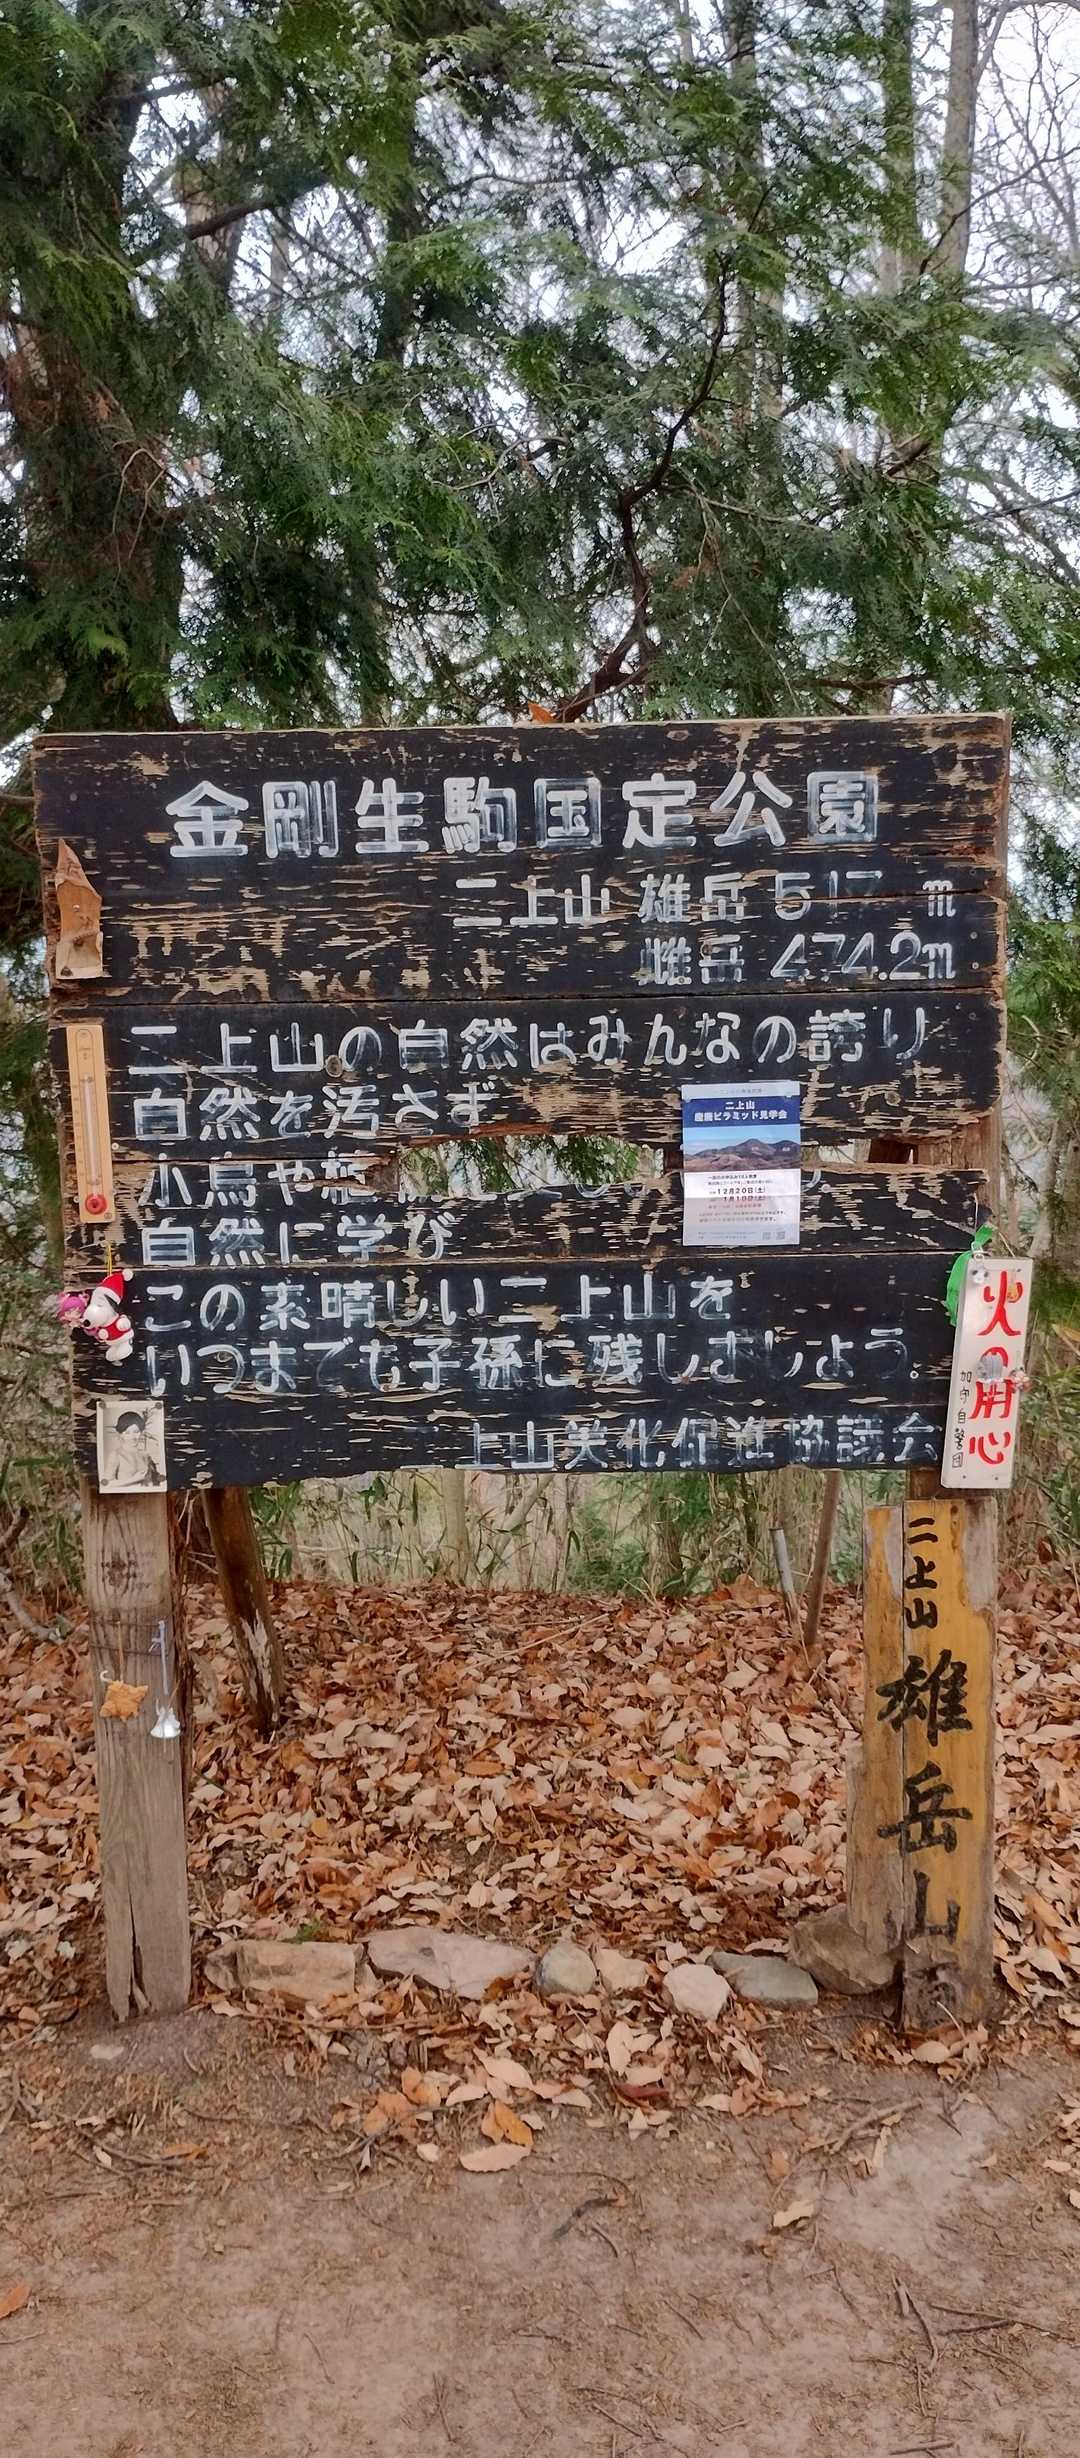 金剛生駒国定公園
二上山 雄岳 517 m
雌岳 474.2m
二上山の自然はみんなの誇り
自然を汚さず
小鳥や植
自然に学び
この素晴しい二上山を
いつまでも子孫に残しましょう。
上山美化促進協議会
二上山
鹿ピラミッド見学会
12月20日(土)
1月10日(土)
火の用心
加守自警団
二上山 雄岳山